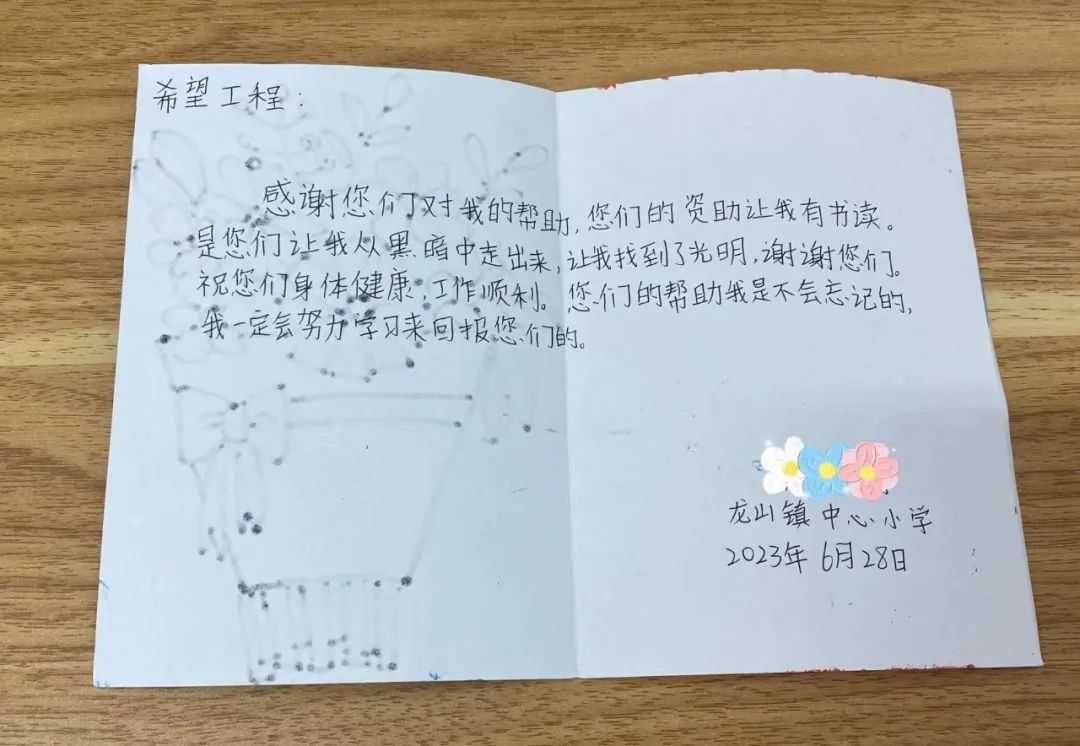 希望工程：
感谢您们对我的帮助，您们的资助让我有书读。
是您们让我从黑暗中走出来，让我找到了光明，谢谢您们。
祝您们身体健康，工作顺利。您们的帮助我是不会忘记的，
我一定会努力学习来回报您们的。
龙山镇中心小学
2023年6月28日